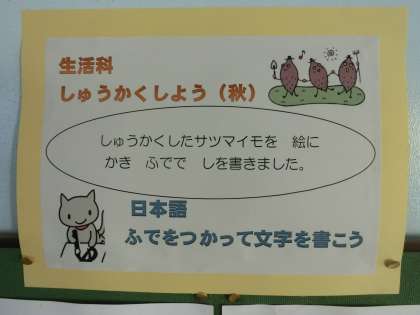 生活科
しゅうかくしよう（秋）
しゅうかくしたサツマイモを　絵に
かき　ふでで　しを書きました。
日本語
ふでをつかって文字を書こう